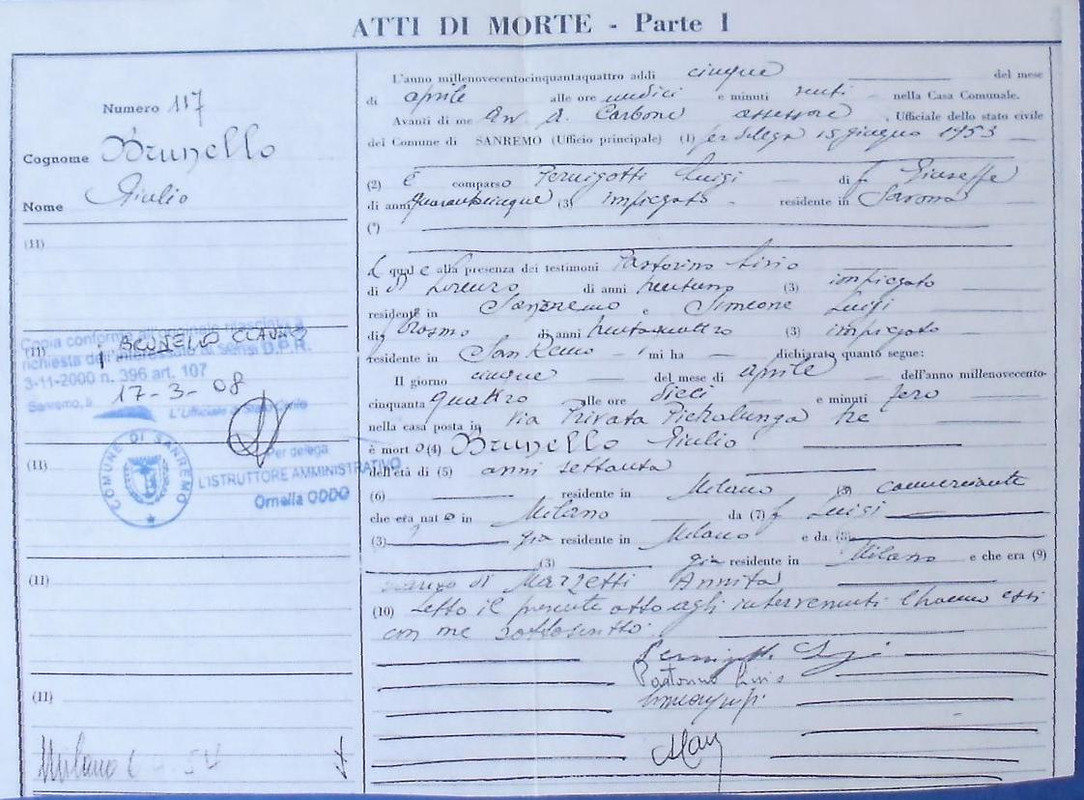 ATTI DI MORTE - Parte I
Numero 117
Cognome Brunello
Nome Giulio
(11)
(11) BRUNELLO CLAUDIO
Copia conforme all'originale rilasciata a
richiesta dell'interessato ai sensi D.P.R.
3-11-2000 n. 396 art. 107
Sanremo, li 17-3-08
L'Ufficiale di Stato Civile
Per delega
L'ISTRUTTORE AMMINISTRATIVO
Ornella ODDO
COMUNE DI SANREMO
(11)
(11)
(11)
Milano 54
L'anno millenovecentocinquantaquattro addi cinque del mese
di aprile alle ore undici e minuti venti nella Casa Comunale.
Avanti di me A. Carboni assessore, Ufficiale dello stato civile
del Comune di SANREMO (Ufficio principale) (1) per delega 15 giugno 1953
(2) È comparso Pernigotti Luigi di f Giuseppe
di anni quarantacinque (3) impiegato residente in Savona
(*)
l qual e alla presenza dei testimoni Pastorino Livio
di di Lorenzo di anni trentuno (3) impiegato
residente in Sanremo e Simeone Luigi
di Cosmo di anni trentaquattro (3) impiegato
residente in San Remo mi ha dichiarato quanto segue:
Il giorno cinque del mese di aprile dell'anno millenovecento-
cinquanta quattro alle ore dieci e minuti zero
nella casa posta in via Privata Pietralunga tre
è mort o (4) Brunello Giulio
dell'età di (5) anni settanta
(6) residente in Milano (3) commerciante
che era nat o in Milano da (7) f Luigi
(3) già residente in Milano e da (8)
(3) già residente in Milano e che era (9)
marito di Mazzetti Annita
(10) Letto il presente atto agli intervenuti l'hanno essi
con me sottoscritto.
Pernigotti Luigi
Pastorino Livio